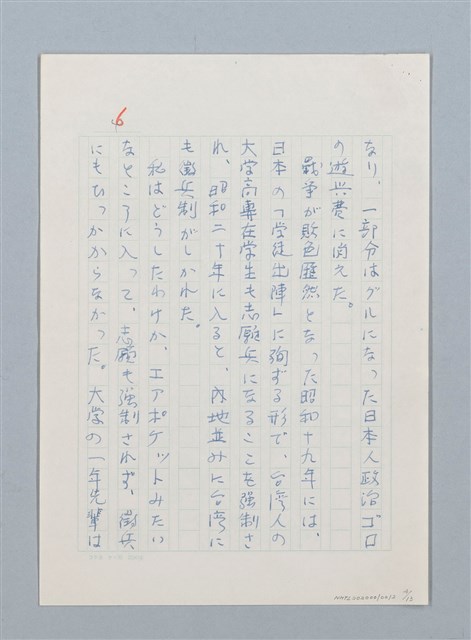 6
なり、一部分はグルになった日本人政治ゴロ
の遊興費に消えた。
戦争が敗色歴然となった昭和十九年には、
日本の「学徒出陣」に殉ずる形で、台湾人の
大学高専在学生も志願兵になることを強制さ
れ、昭和二十年に入ると、内地並みに台湾に
も徴兵制がしかれた。
私はどうしたわけか、エアポケットみたい
なところに入って、志願も強制されず、徴兵
にもひっかからなかった。大学の一年先輩は